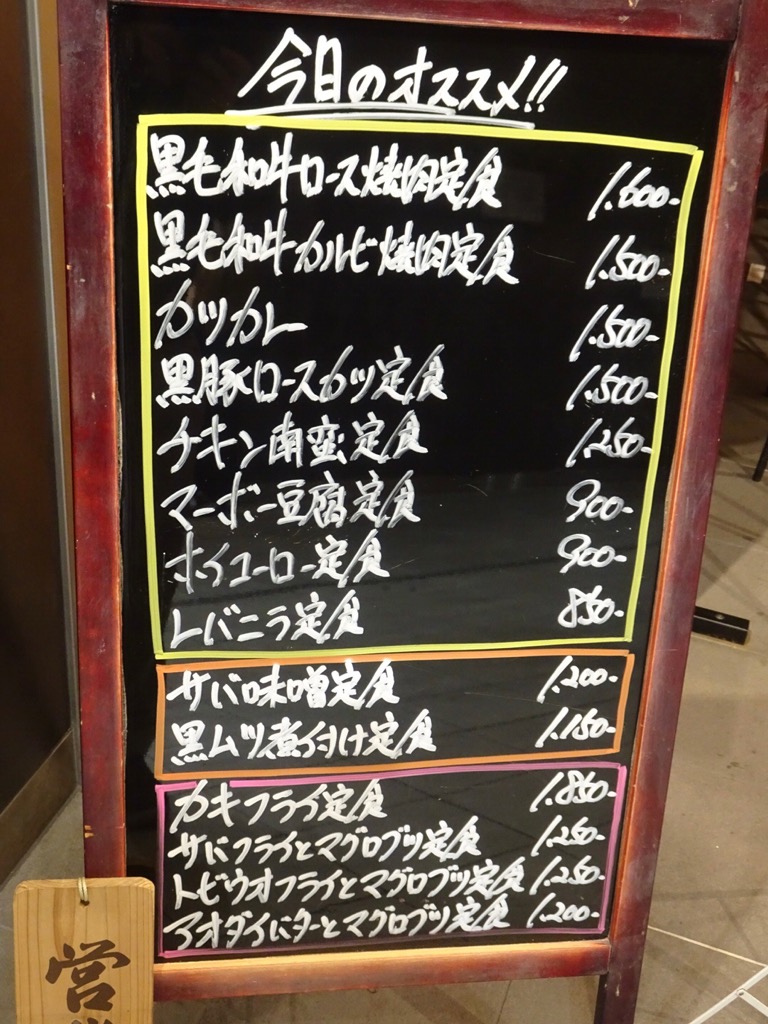 今日のオススメ!!
黒毛和牛ロース焼肉定食 1.600-
黒毛和牛カルビ焼肉定食 1.500-
カツカレー 1.500-
黒豚ロースカツ定食 1.500-
チキン南蛮定食 1.250-
マーボー豆腐定食 900-
ホイコーロー定食 900-
レバニラ定食 850-
サバ味噌定食 1.200-
黒ムツ煮付け定食 1.150-
カキフライ定食 1.850-
サバフライとマグロブツ定食 1.250-
トビウオフライとマグロブツ定食 1.250-
アオダイバターとマグロブツ定食 1.200-
営